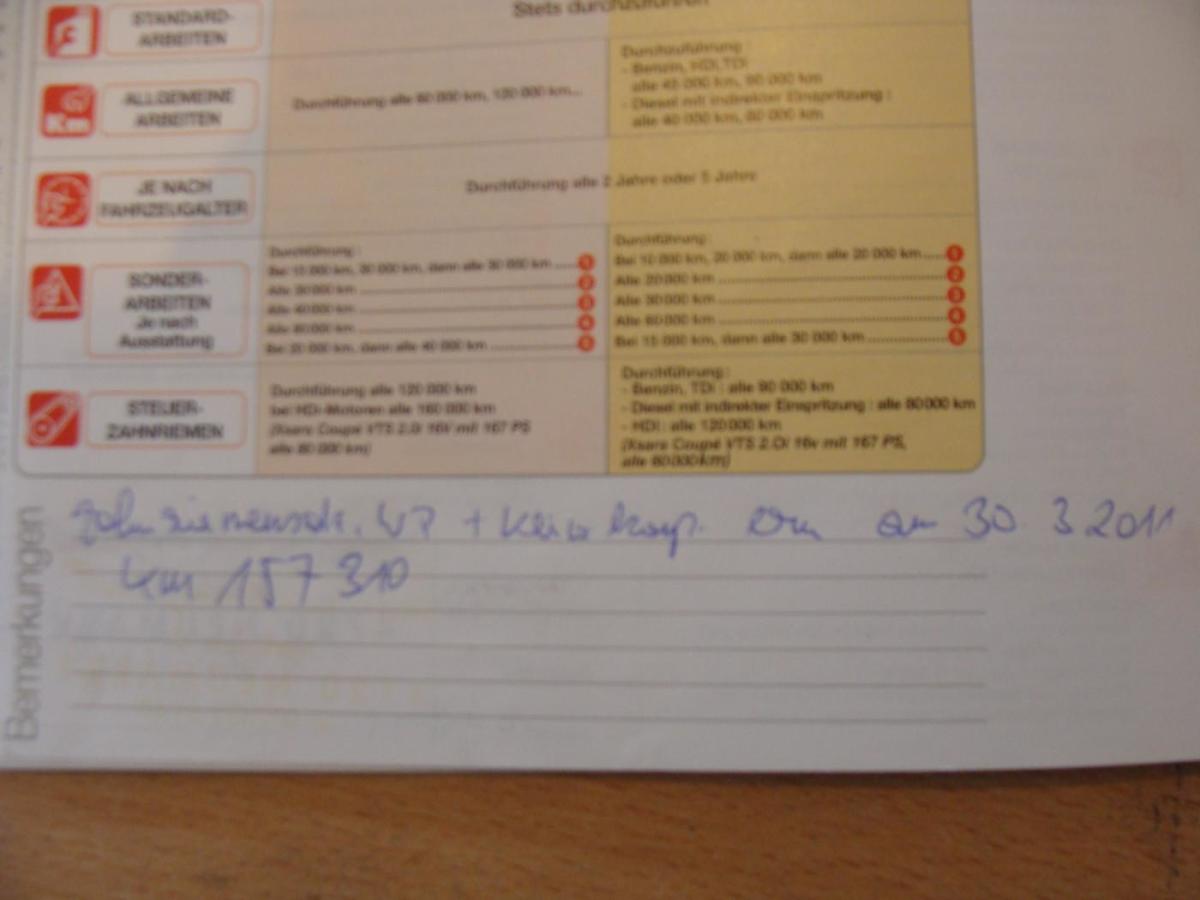 STANDARD-
ARBEITEN
Stets durchzuführen
ALLGEMEINE
ARBEITEN
Durchführung alle 60 000 km, 120 000 km...
Durchzuführung :
- Benzin, HDI, TDI
alle 45 000 km, 90 000 km
- Diesel mit indirekter Einspritzung :
alle 40 000 km, 80 000 km
JE NACH
FAHRZEUGALTER
Durchführung alle 2 Jahre oder 5 Jahre
SONDER-
ARBEITEN
Je nach
Ausstattung
Durchführung :
Bei 15 000 km, 30 000 km, dann alle 30 000 km ..... 1
Alle 30 000 km ..... 2
Alle 40 000 km ..... 3
Alle 60 000 km ..... 4
Bei 20 000 km, dann alle 40 000 km ..... 5
Durchführung :
Bei 10 000 km, 20 000 km, dann alle 20 000 km ..... 1
Alle 20 000 km ..... 2
Alle 30 000 km ..... 3
Alle 60 000 km ..... 4
Bei 15 000 km, dann alle 30 000 km ..... 5
STEUER-
ZAHNRIEMEN
Durchführung alle 120 000 km
bei HDI-Motoren alle 160 000 km
(Xsara Coupé VTS 2.0i 16V mit 167 PS
alle 80 000 km)
Durchführung :
- Benzin, TDi : alle 90 000 km
- Diesel mit indirekter Einspritzung : alle 80 000 km
- HDI : alle 120 000 km
(Xsara Coupé VTS 2.0i 16v mit 167 PS,
alle 60 000 km)
Bemerkungen
+ am 30 3 2011
km 157 310